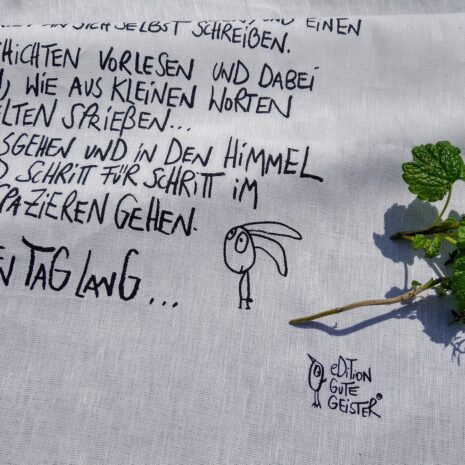 AN SICH SELBST SCHREIBEN, UND EINEN
CHICHTEN VORLESEN UND DABEI
, WIE AUS KLEINEN WORTEN
ELTEN SPRIEßEN...
SGEHEN UND IN DEN HIMMEL
D SCHRITT FÜR SCHRITT IM
SPAZIEREN GEHEN.
EN TAG LANG...
eDiTiON
GUTE
GEiSTER®